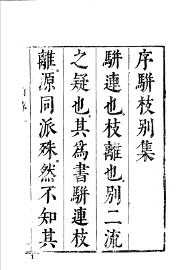 序駢枝別集
駢連也。枝離也。別二流
之疑也。其為書駢連枝
離。源同派殊。然不知其
1